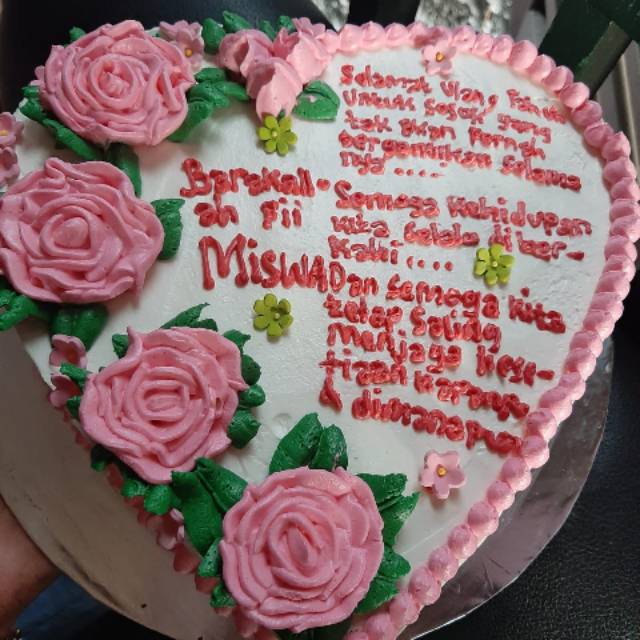 Barakall-
ah Fii
MISWA
Selamat Ulang
Untuk Sosok yang
tak akan Pernah
tergantikan Selama
nya .....
Semoga Kehidupan
kita Selalu diber-
Kahi....
Dan semoga kita
tetap Saling
Menjaga kese-
tiaan
& dimanapun